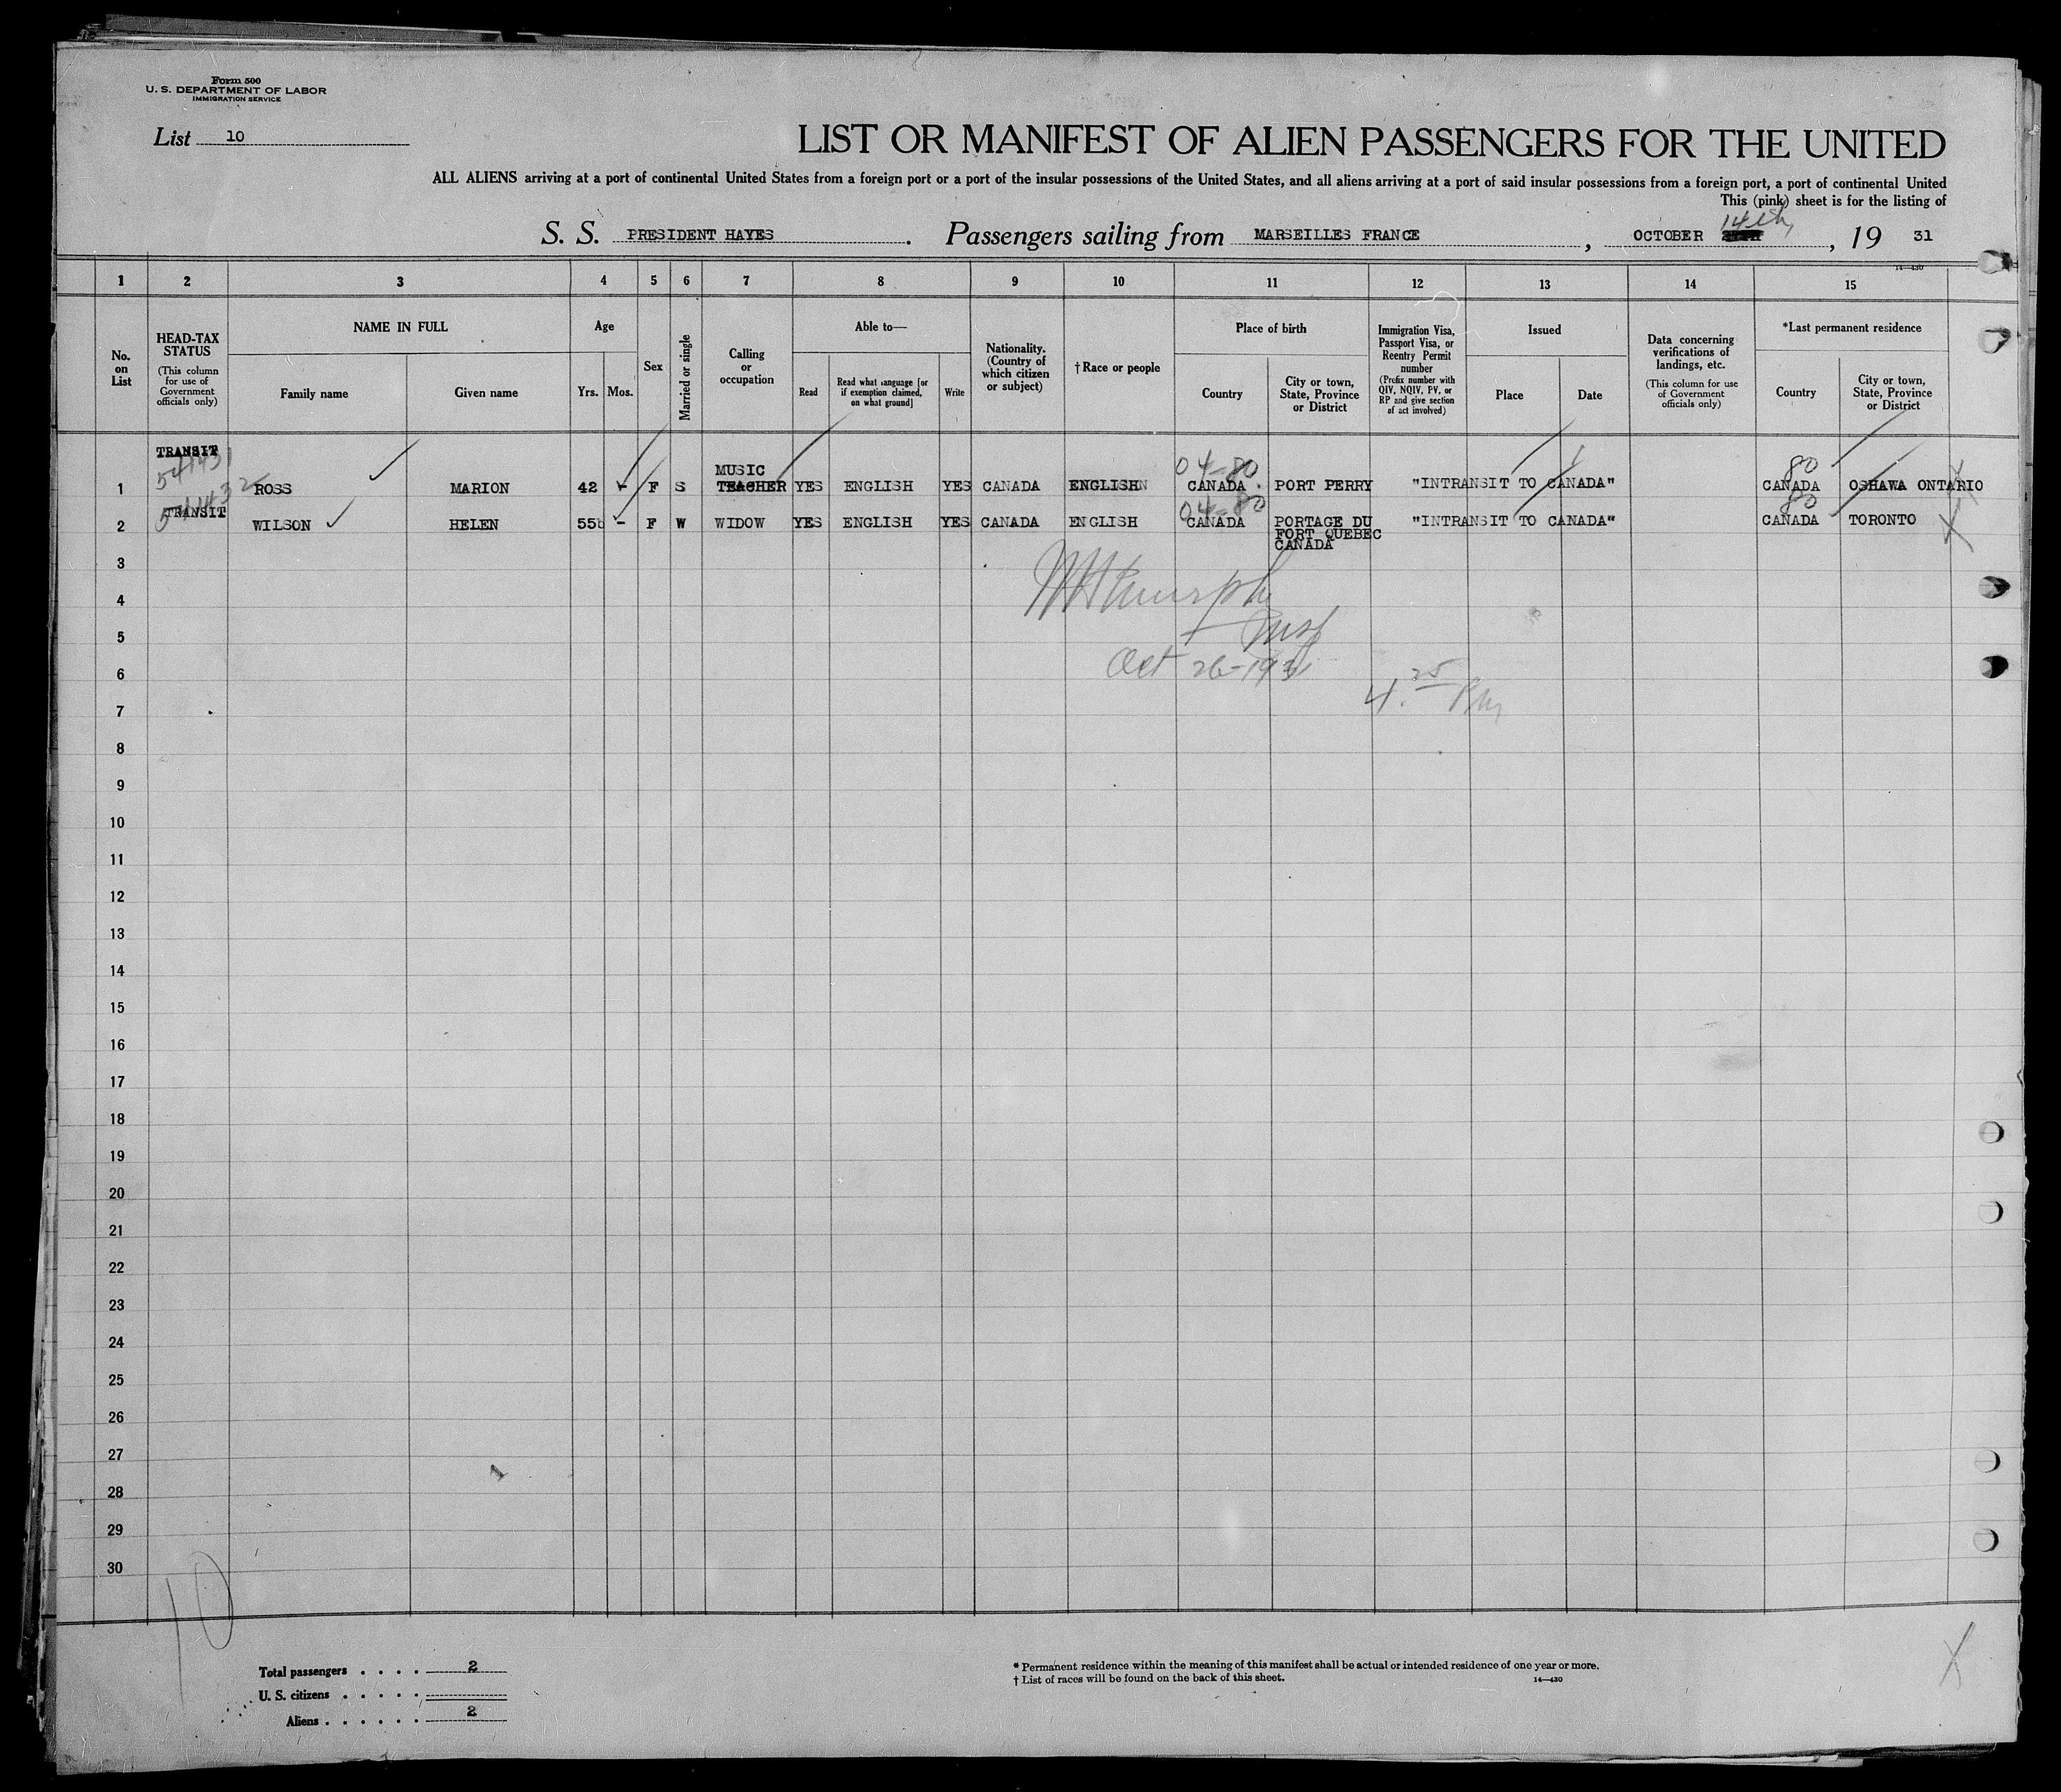 Form 500
U. S. DEPARTMENT OF LABOR
IMMIGRATION SERVICE
List 10
LIST OR MANIFEST OF ALIEN PASSENGERS FOR THE UNITED
ALL ALIENS arriving at a port of continental United States from a foreign port or a port of the insular possessions of the United States, and all aliens arriving at a port of said insular possessions from a foreign port, a port of continental United
This (pink) sheet is for the listing of
14th
S. S. PRESIDENT HAYES. Passengers sailing from MARSEILLES FRANCE, OCTOBER , 19 31
14—430
1 2 3 4 5 6 7 8 9 10 11 12 13 14 15
No. on List
HEAD-TAX STATUS
(This column for use of Government officials only)
NAME IN FULL
Family name
Given name
Age
Yrs.
Mos.
Sex
Married or single
Calling or occupation
Able to—
Read
Read what language [or if exemption claimed, on what ground]
Write
Nationality. (Country of which citizen or subject)
†Race or people
Place of birth
Country
City or town, State, Province or District
Immigration Visa, Passport Visa, or Reentry Permit number
(Prefix number with QIV, NQIV, PV, or RP and give section of act involved)
Issued
Place
Date
Data concerning verifications of landings, etc.
(This column for use of Government officials only)
*Last permanent residence
Country
City or town, State, Province or District
TRANSIT
541431
MUSIC
04-80
80
1 ROSS MARION 42 - F S TEACHER YES ENGLISH YES CANADA ENGLISH CANADA PORT PERRY "INTRANSIT TO CANADA" CANADA OSHAWA ONTARIO
541432
TRANSIT
04-80
80
2 WILSON HELEN 55 - F W WIDOW YES ENGLISH YES CANADA ENGLISH CANADA PORTAGE DU "INTRANSIT TO CANADA" CANADA TORONTO
FORT QUEBEC
CANADA
3
4
5
Insp
6
Oct 26-1931
4.25 PM
7
8
9
10
11
12
13
14
15
16
17
18
19
20
21
22
23
24
25
26
27
28
29
30
10
Total passengers . . . . 2
U. S. citizens . . . . .
Aliens . . . . . . 2
* Permanent residence within the meaning of this manifest shall be actual or intended residence of one year or more.
† List of races will be found on the back of this sheet.
14—430